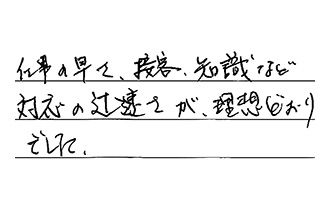 仕事の早さ、接客、知識など
対応の迅速さが、理想どおり
でした。